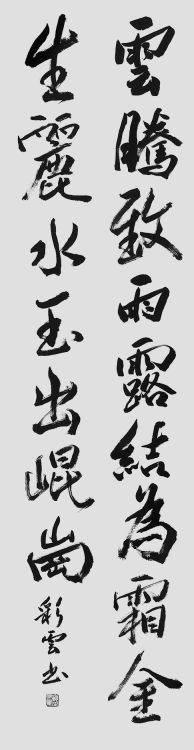 雲騰致雨露結為霜金
生麗水玉出崐崗
彩雲书